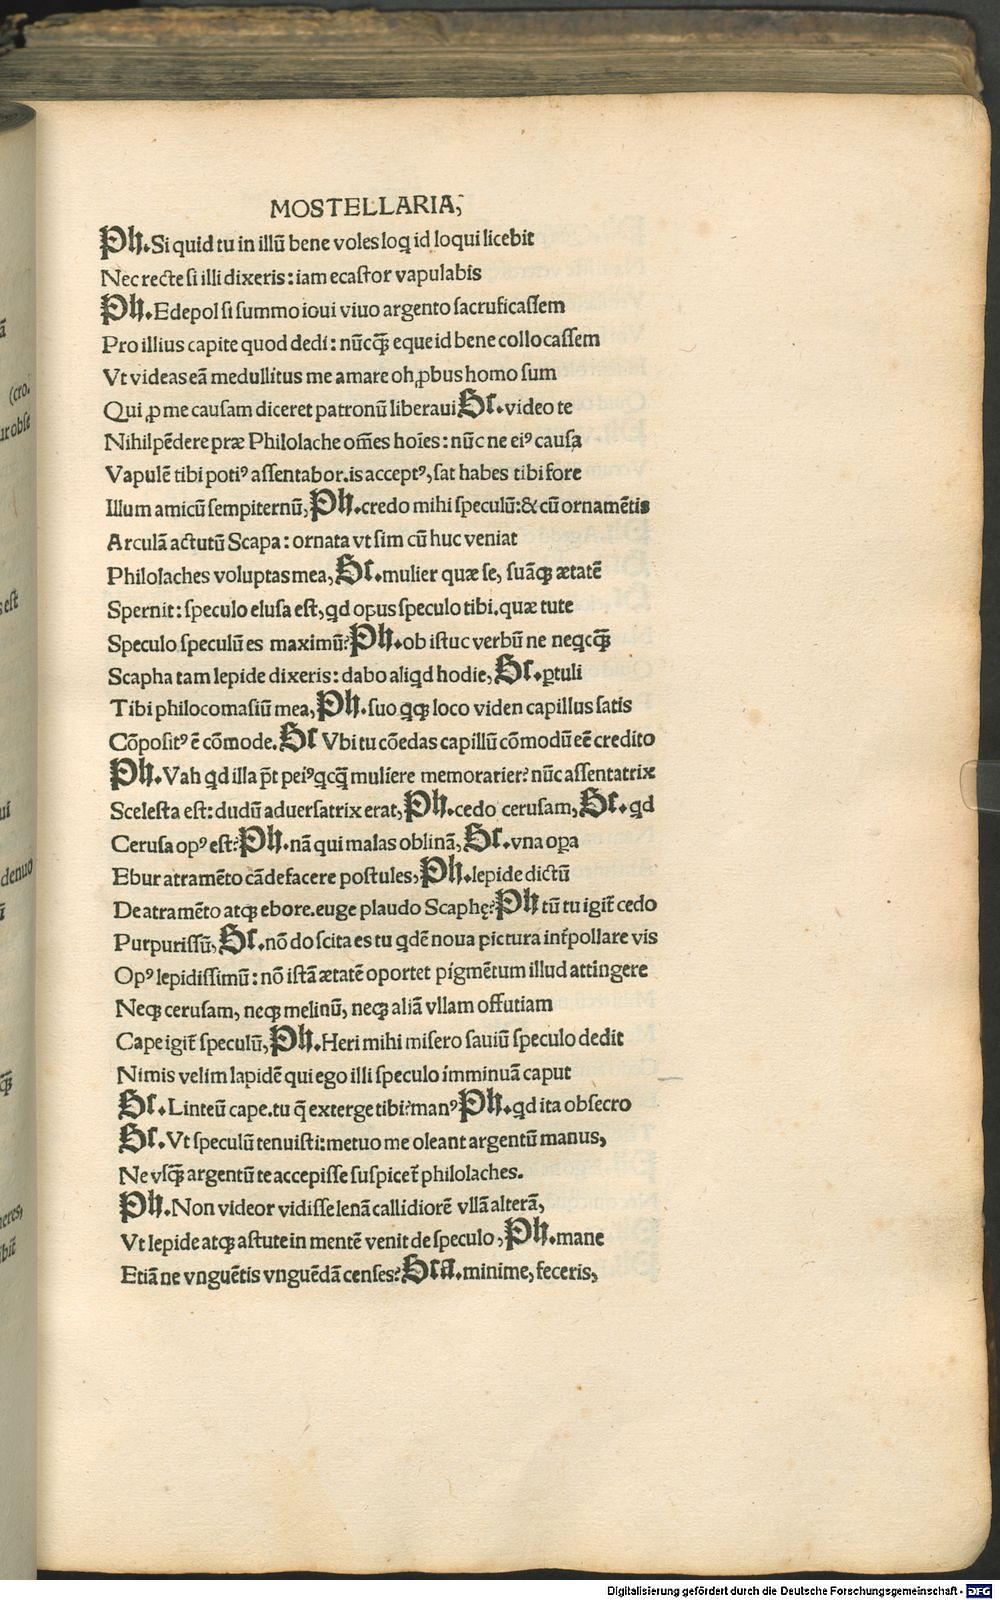 MOSTELLARIA,
Ph. Si quid tu in illū bene voles loq̨ id loqui licebit
Nec recte si illi dixeris: iam ecastor vapulabis
Ph. Edepol si summo ioui viuo argento sacruficassem
Pro illius capite quod dedi: nūcq̄ȝ eque id bene collocassem
Vt videas eā medullitus me amare oh ꝓbus homo sum
Qui ꝓ me causam diceret patronū liberaui Sc. video te
Nihil pēdere præ Philolache om̄es hoīes: nūc ne eiꝰ causa
Vapulē tibi potiꝰ assentabor. is acceptꝰ, sat habes tibi fore
Illum amicū sempiternū, Ph. credo mihi speculū: & cū ornamētis
Arculā actutū Scapa: ornata vt sim cū huc veniat
Philolaches voluptas mea, Sc. mulier quæ se, suāqȝ ætatē
Spernit: speculo elusa est, qd opus speculo tibi. quæ tute
Speculo speculū es maximū? Ph. ob istuc verbū ne neqcq̄ȝ
Scapha tam lepide dixeris: dabo aliqd hodie, Sc. ꝑtuli
Tibi philocomasiū mea, Ph. suo qqȝ loco viden capillus satis
Cōpositꝰ ē cōmode. Sc Vbi tu cōedas capillū cōmodū eē credito
Ph. Vah qd illa p̄t peiꝰ qcq̄ȝ muliere memorarier? nūc assentatrix
Scelesta est: dudū aduersatrix erat, Ph. cedo cerusam, Sc. qd
Cerusa opꝰ est? Ph. nā qui malas oblinā, Sc. vna oꝑa
Ebur atramēto cādefacere postules, Ph. lepide dictū
De atramēto atqȝ ebore. euge plaudo Scaphę? Ph tū tu igit̄ cedo
Purpurissū, Sc. nō do scita es tu qdē noua pictura int̄pollare vis
Opꝰ lepidissimū: nō istā ætatē oportet pigmētum illud attingere
Neqȝ cerusam, neqȝ melinū, neqȝ aliā vllam offutiam
Cape igit̄ speculū, Ph. Heri mihi misero sauiū speculo dedit
Nimis velim lapidē qui ego illi speculo imminuā caput
Sc. Linteū cape. tu q̄ exterge tibi? manꝰ Ph. qd ita obsecro
Sc. Vt speculū tenuisti: metuo me oleant argentū manus,
Ne vsq̄ȝ argentū te accepisse suspicet̄ philolaches.
Ph. Non videor vidisse lenā callidiorē vllā alterā,
Vt lepide atqȝ astute in mentē venit de speculo, Ph. mane
Etiā ne vnguētis vnguēdā censes? Sca. minime, feceris,
(cro.
ur obse
s est
ui
denuo
neres,
ibit̄
Digitalisierung gefördert durch die Deutsche Forschungsgemeinschaft - DFG